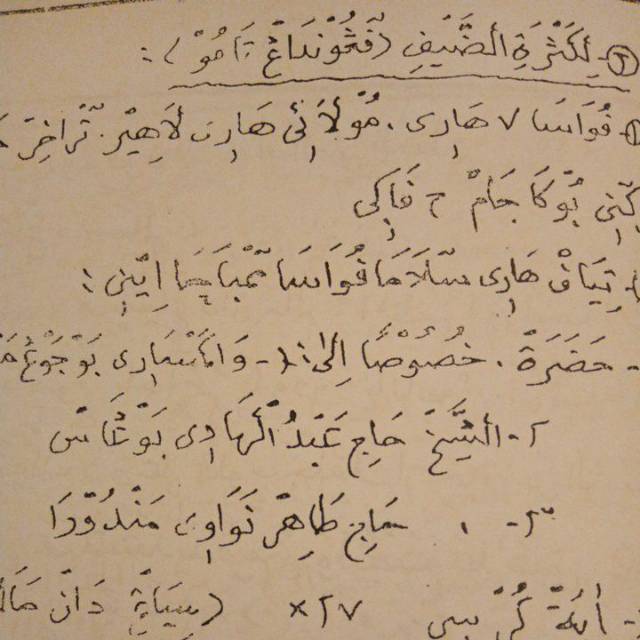 ٢- لِكَثْرَةِ الضَّيْفِ (ڤَڠُوْنْدَاڠْ تَامُوْ):
فُوَاسَا ٧ هَارِى. مُوْلَائِى هَارِى لَاهِيْر. تْرَاخِرْ
بُوْكَا جَامْ ٣ فَاكِى
تِيَافْ هَارِى سْلَامَا فُوَاسَا مَمْبَاچَا اِيْنِى:
- حَضَرَةْ. خُصُوْصًا اِلَى: ١- وَا أَسْمَارِى بَوْجَوْڠْ
٢- الشَّيْخْ حَاجِ عَبْدُ الْهَادِى بَوْڠَاسْ
٣- حَاجِ طَاهِرْ نَوَاوِى مَنْدُوْرَا
- اٰيَةْ كُرْسِى ٢٧× (سِيَاڠْ دَانْ مَالَمْ